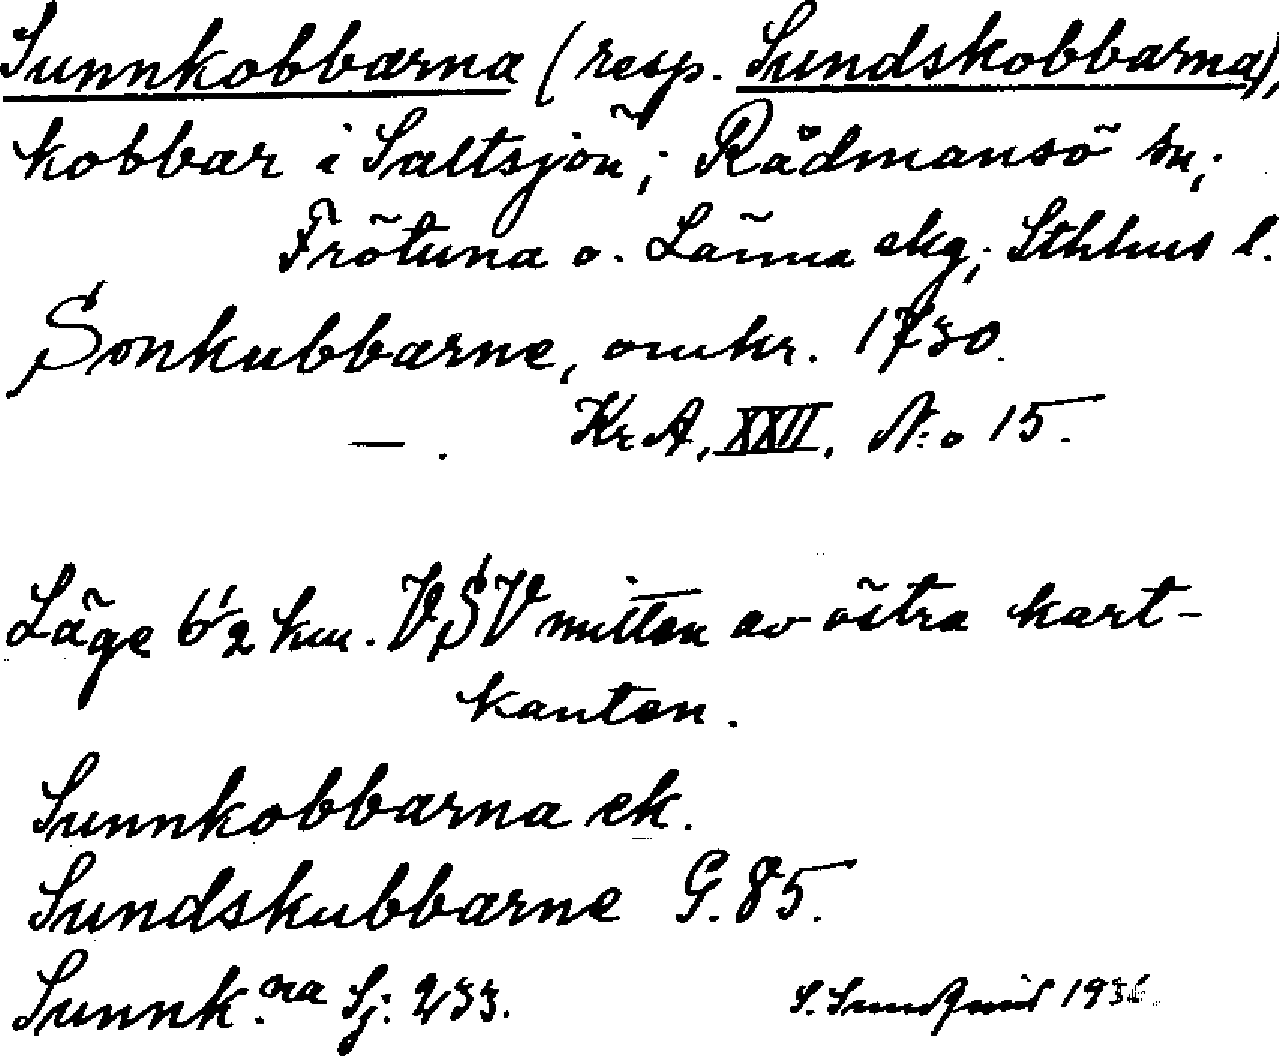 Sunnkobbarna (resp. Sundskobbarna),
kobbar i Saltsjön; Rådmansö sn;
Frötuna o. Länna skg; Sthlms l.
Sonkubbarne, omkr. 1730.
—. Kr. A, XXII. N:o 15.
Läge 6 1/2 km. VSV mitten av östra kart-
kanten.
Sunnkobbarna ek.
Sundskubbarne G. 85.
Sunnk.na Sj: 233.
S. Sundqvist